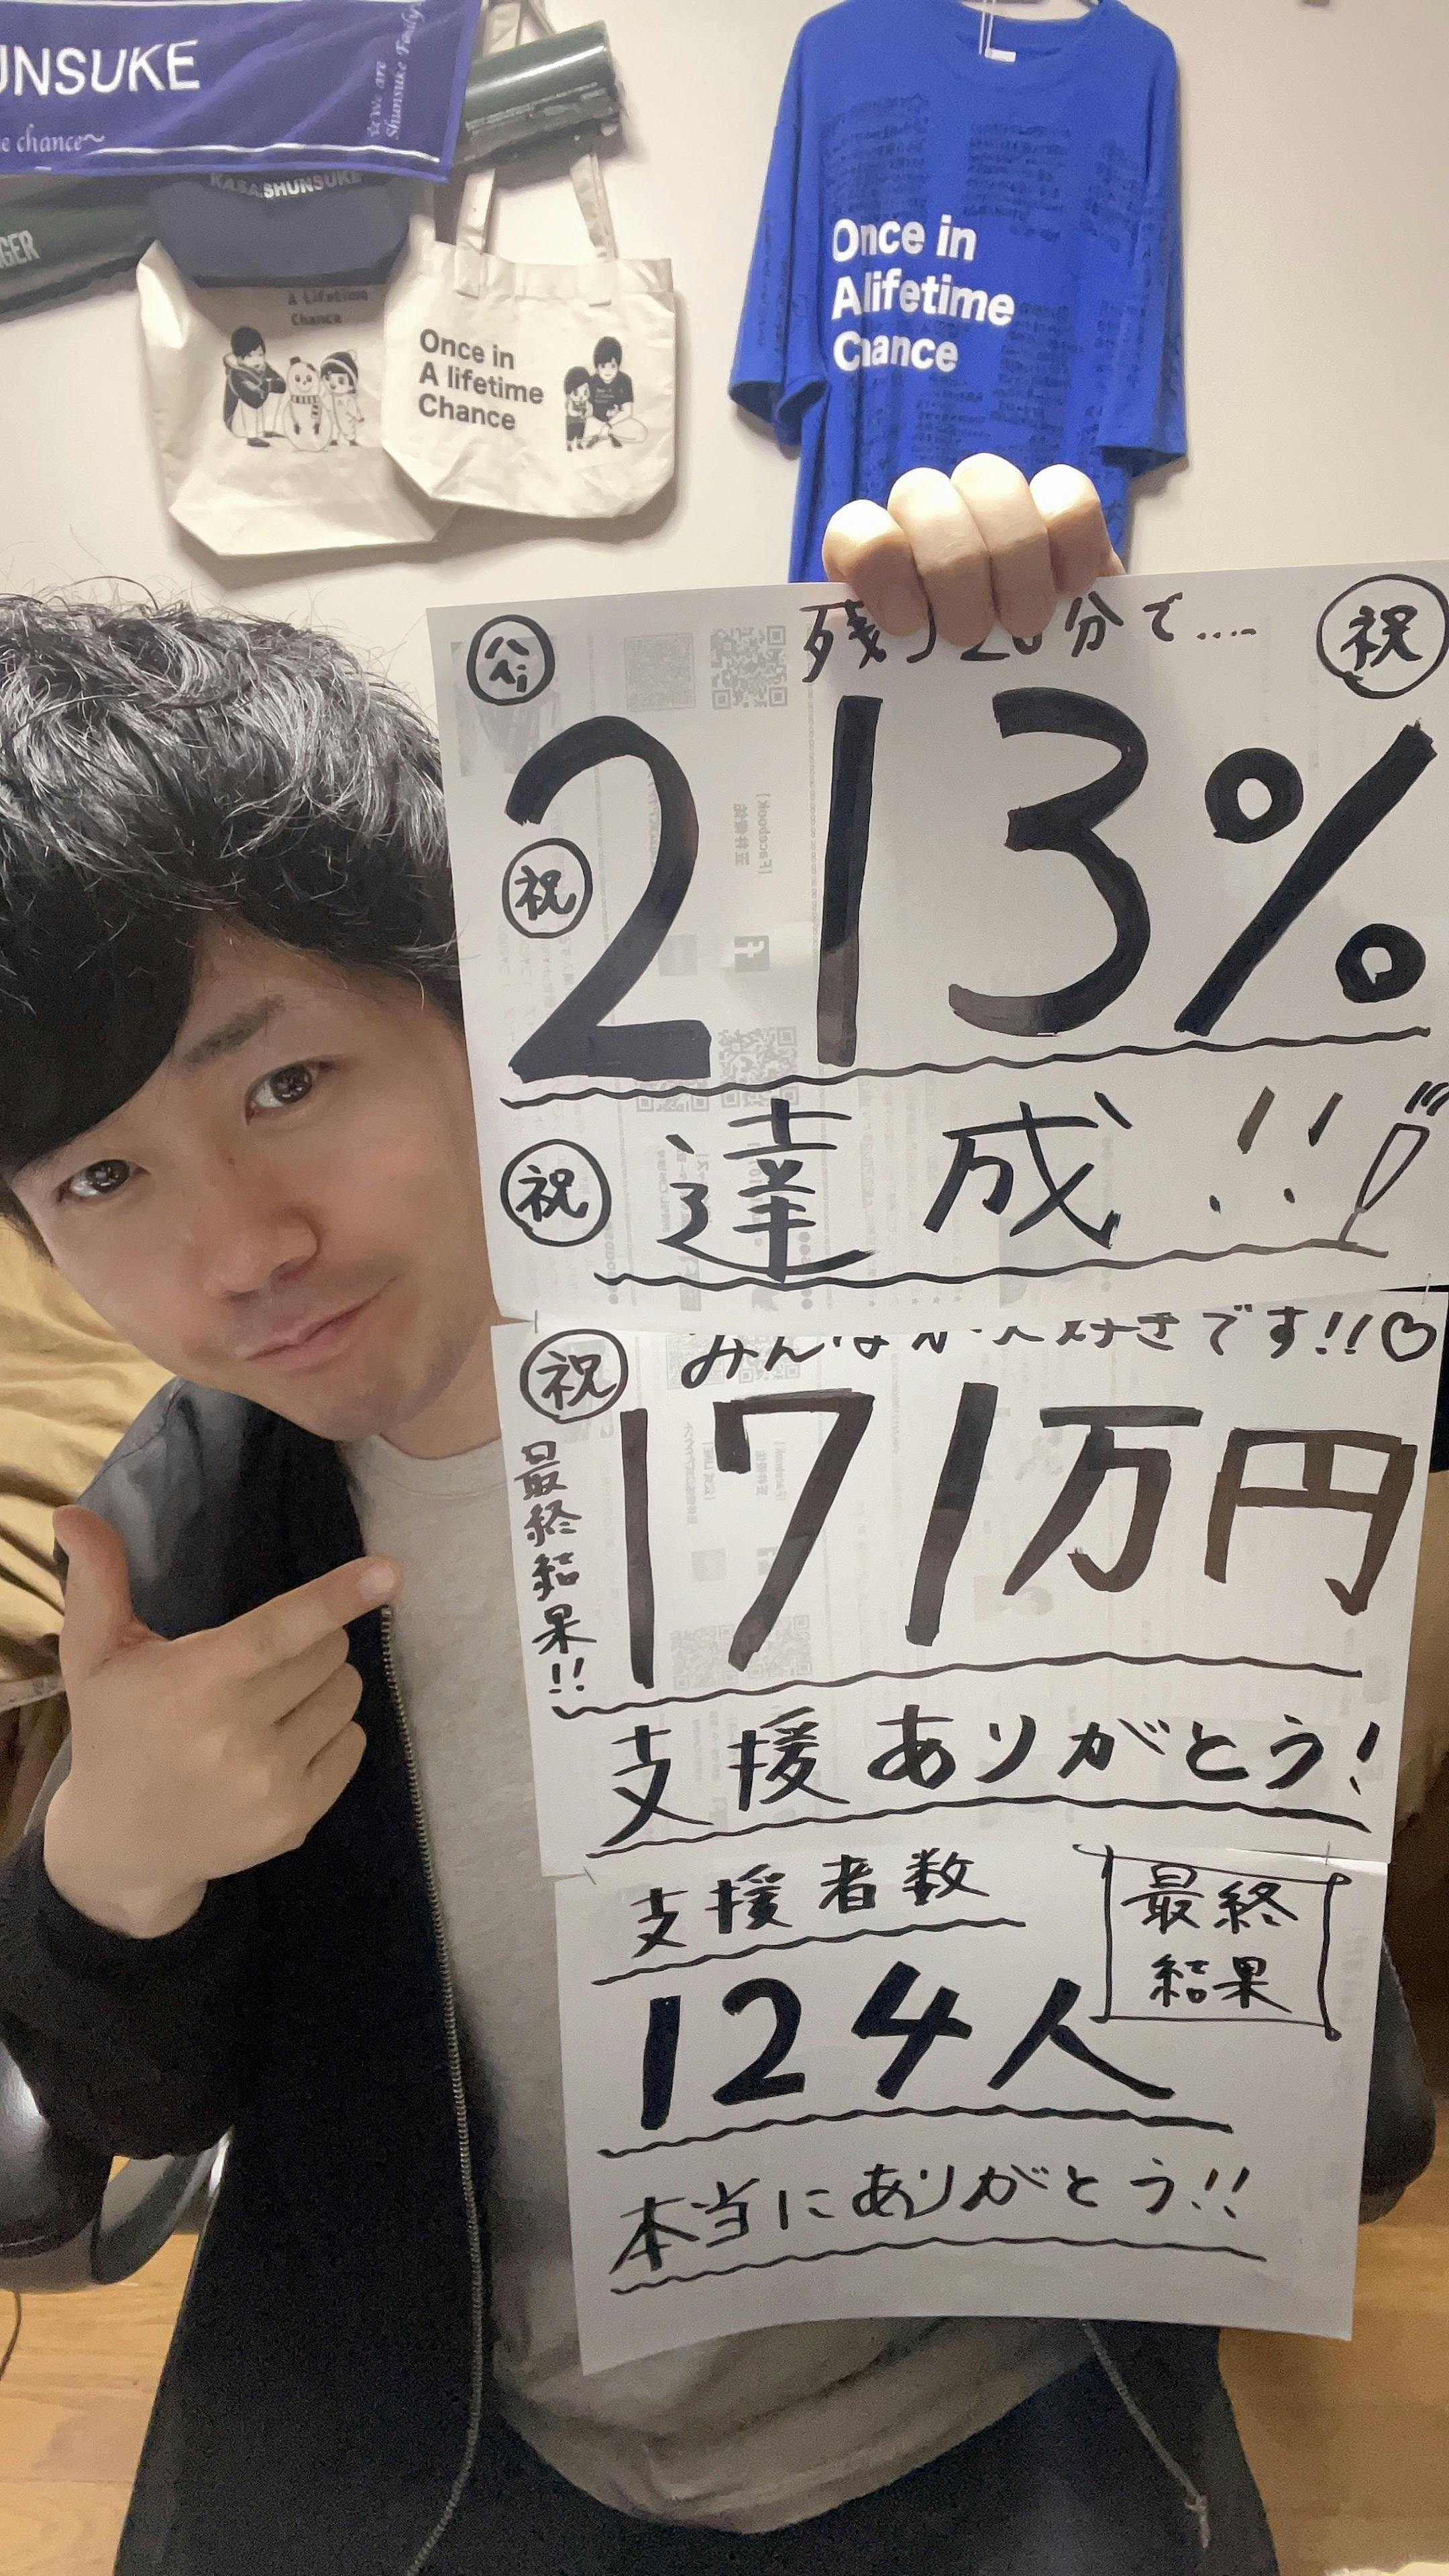 UNSUKE
e chance~
☆We are
Shunsuke Family
KASAI SHUNSUKE
GER
A Lifetime
Chance
Once in
A lifetime
Chance
Once in
A lifetime
Chance
残り20分で....
祝
祝
213%
祝
達成!!
祝
みんなが大好きです!!♡
最終結果!!
171万円
支援ありがとう!
支援者数
最終
結果
124人
本当にありがとう!!